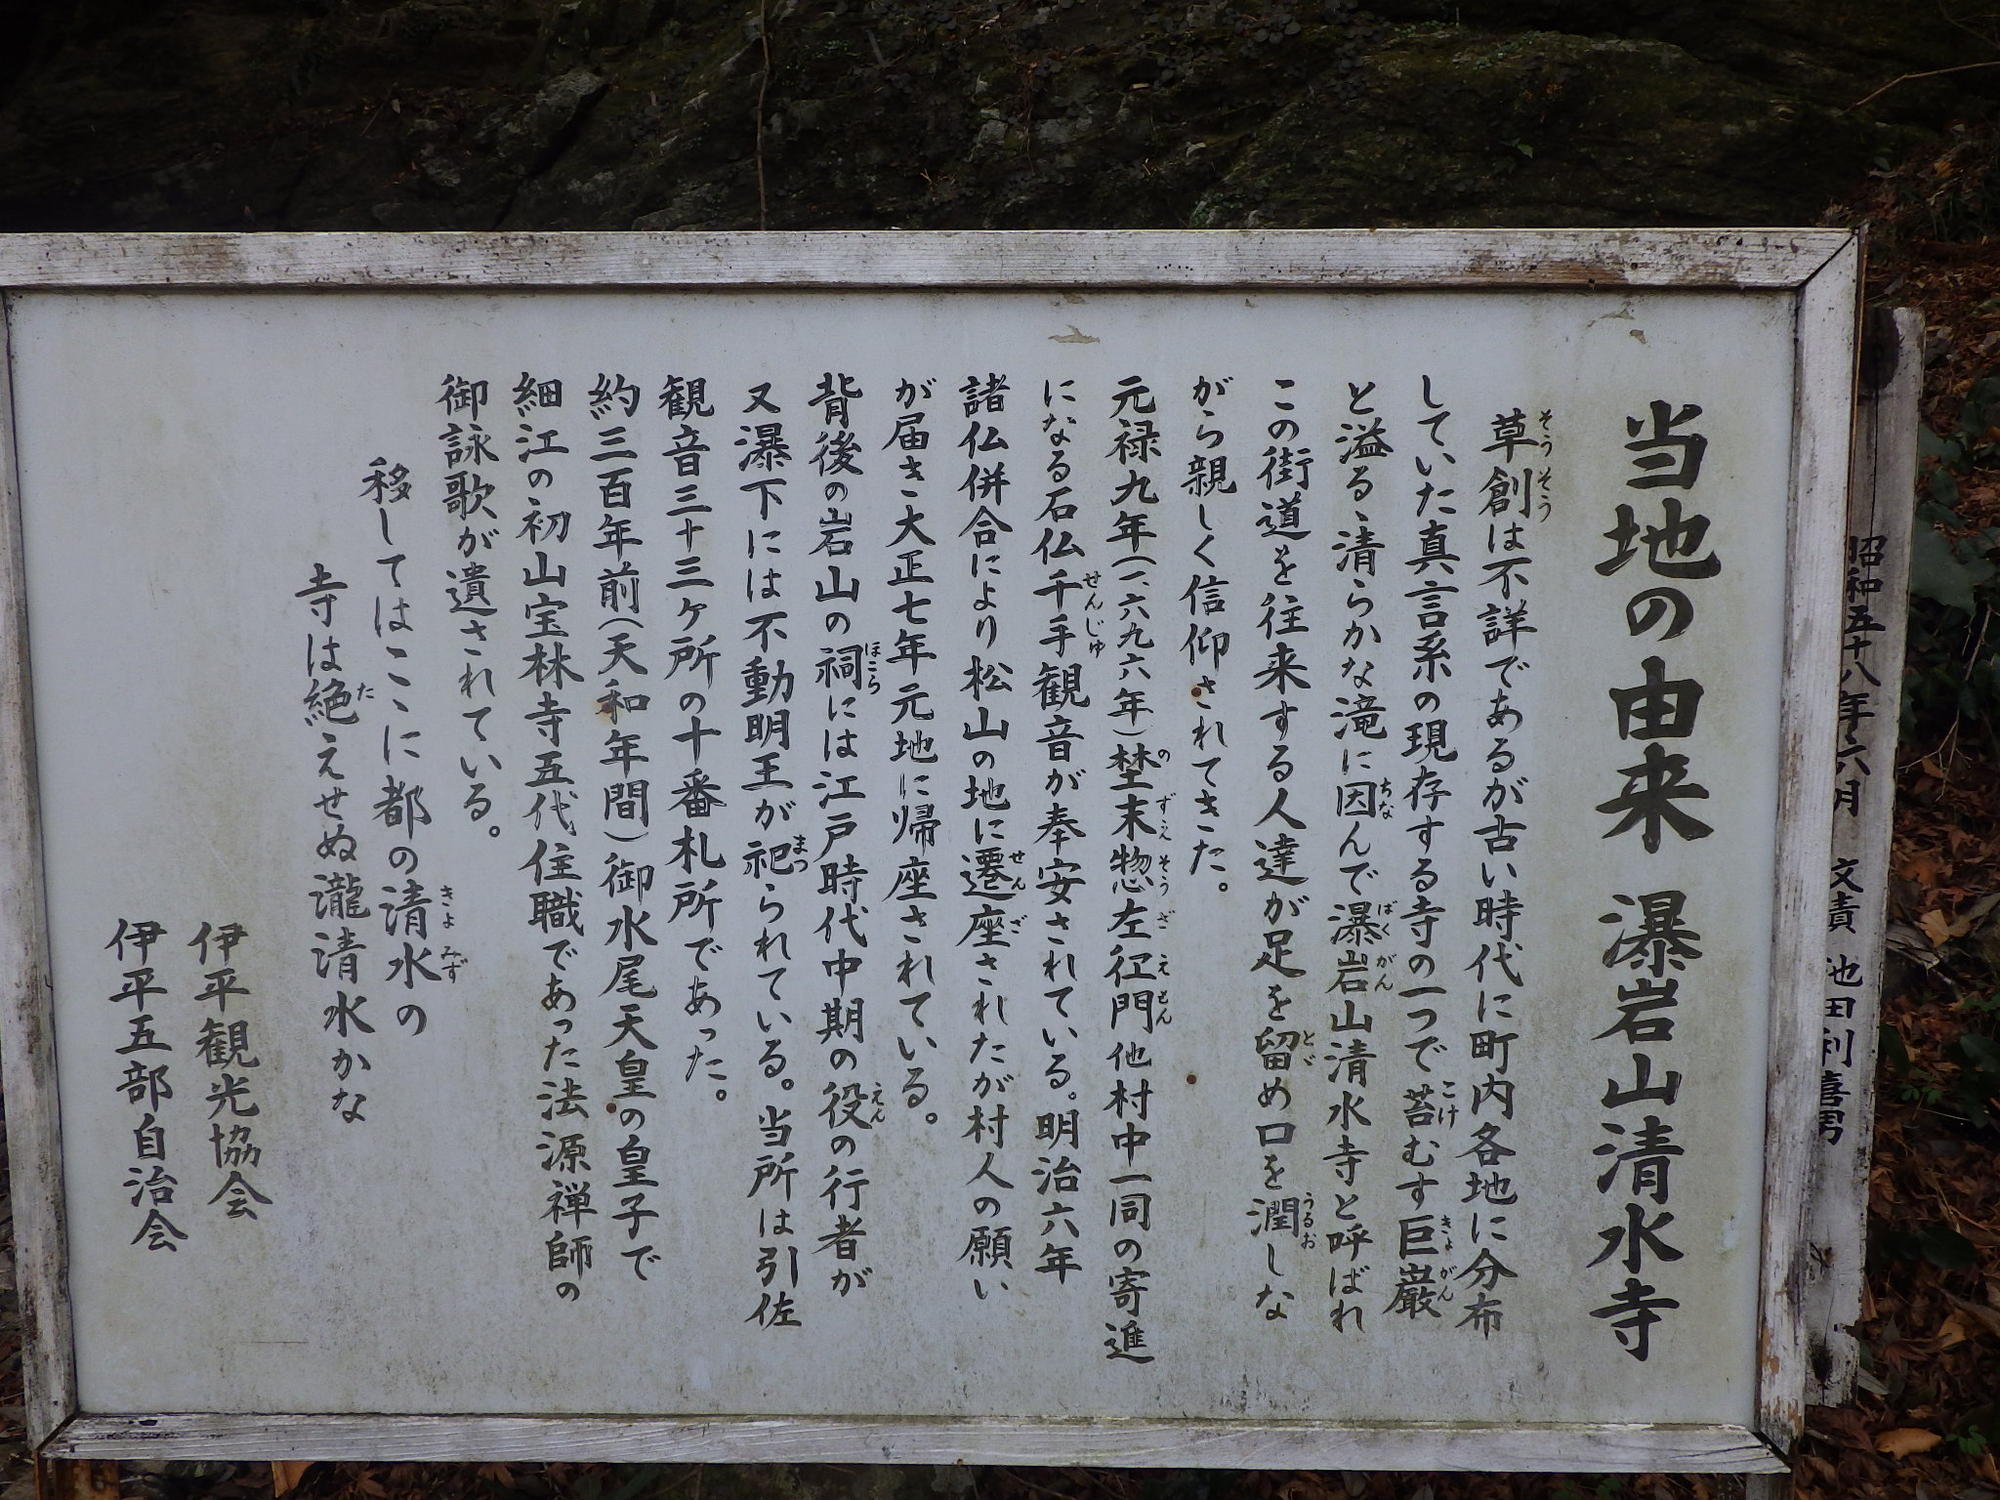 当地の由来 瀑岩山清水寺
草創は不詳であるが古い時代に町内各地に分布
していた真言系の現存する寺の一つで苔むす巨巌
と溢るゝ清らかな滝に因んで瀑岩山清水寺と呼ばれ
この街道を往来する人達が足を留め口を潤しな
がら親しく信仰されてきた。
元禄九年(一六九六年)埜末惣左衛門他村中一同の寄進
になる石仏千手観音が奉安されている。明治六年
諸仏併合により松山の地に遷座されたが村人の願い
が届き大正七年元地に帰座されている。
背後の岩山の祠には江戸時代中期の役の行者が
又瀑下には不動明王が祀られている。当所は引佐
観音三十三ヶ所の十番札所であった。
約三百年前(天和年間)御水尾天皇の皇子で
細江の初山宝林寺五代住職であった法源禅師の
御詠歌が遺されている。
移してはこゝに都の清水の
寺は絶えせぬ瀧清水かな
伊平観光協会
伊平五部自治会
昭和五十八年六月 文責 池田利喜男